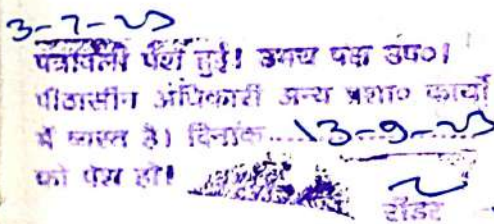 3-7-23
पत्रावली पेश हुई। उभय पक्ष उप०।
पीठासीन अधिकारी अन्य प्रशा० कार्यो
में व्यस्त है। दिनांक.....13-9-23
को पेश हो।
रीडर